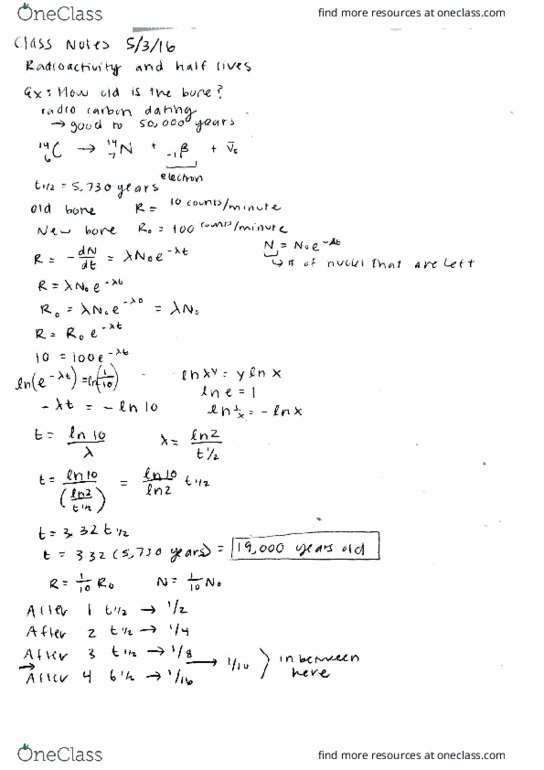 OneClass find more resources at oneclass.com
Class Notes 5/3/16
Radioactivity and half lives
Ex: How old is the bone?
radio carbon dating
→ good to 50,000 years
¹⁴₆C → ¹⁴₇N + ₋₁β + ν̄ₑ
electron
t½ = 5,730 years
old bone R = 10 counts/minute
New bone R₀ = 100 counts/minute
R = -dN/dt = λN₀e^-λt N = N₀e^-λt
↳ # of nuclei that are left
R = λN₀e^-λt
R₀ = λN₀e^-λ0 = λN₀
R = R₀e^-λt
10 = 100e^-λt
ln(e^-λt) = ln(1/10) ln x^y = y ln x
ln e = 1
-λt = -ln 10 ln 1/x = -ln x
t = ln 10/λ λ = ln 2/t½
t = ln 10/(ln 2/t½) = ln 10/ln 2 t½
t = 3.32 t½
t = 3.32 (5,730 years) = 19,000 years old
R = 1/10 R₀ N = 1/10 N₀
After 1 t½ → 1/2
After 2 t½ → 1/4
After 3 t½ → 1/8
→ → 1/10 } in between here
After 4 t½ → 1/16
OneClass find more resources at oneclass.com